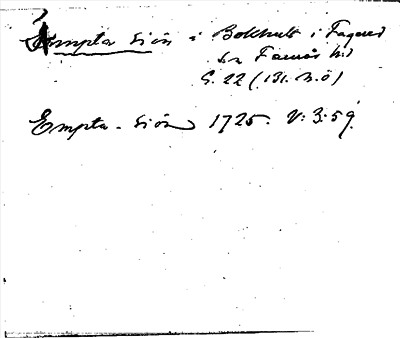 Empta siön i Bokhult i Fagered
sn Faurås hd
G. 22 (131. n. ö)
Empta-siön 1725. V:3:59.